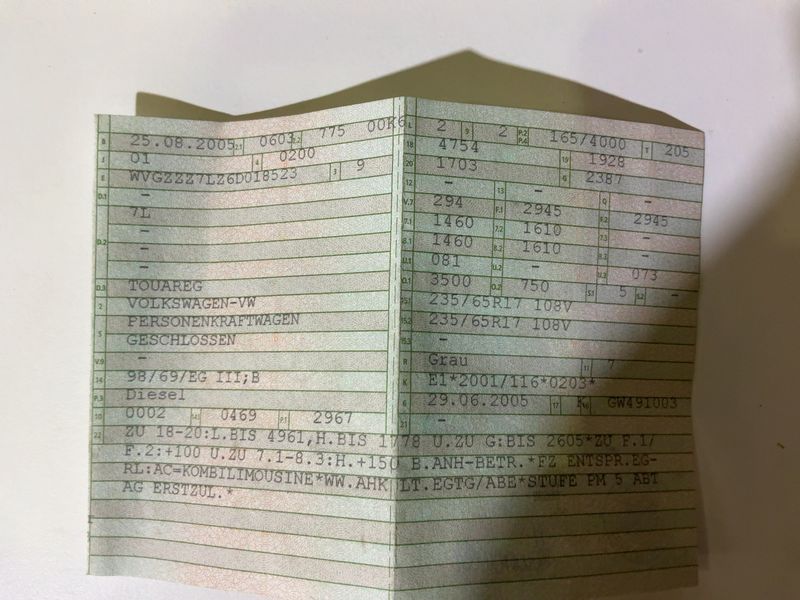 B 25.08.2005 2.1 0603 2.2 775 00K6
J 01 4 0200
E WVGZZZ7LZ6D018523 3 9
D.1 -
7L
-
D.2 -
-
-
D.3 TOUAREG
2 VOLKSWAGEN-VW
PERSONENKRAFTWAGEN
5 GESCHLOSSEN
V.9 -
14 98/69/EG III;B
P.3 Diesel
10 0002 14.1 0469 P.1 2967
L 2 9 2 P.2 P.4 165/4000 T 205
18 4754 19 1928
20 1703 G 2387
12 - 13 - Q -
V.7 294 F.1 2945 F.2 2945
7.1 1460 7.2 1610 7.3 -
8.1 1460 8.2 1610 8.3 -
U.1 081 U.2 - U.3 073
O.1 3500 O.2 750 S.1 5 S.2 -
15.1 235/65R17 108V
15.2 235/65R17 108V
15.3 -
R Grau 11 7
K E1*2001/116*0203*
6 29.06.2005 17 K 16 GW491003
21 -
22 ZU 18-20:L.BIS 4961,H.BIS 1778 U.ZU G:BIS 2605*ZU F.1/
F.2:+100 U.ZU 7.1-8.3:H.+150 B.ANH-BETR.*FZ ENTSPR.EG-
RL:AC=KOMBILIMOUSINE*WW.AHK LT.EGTG/ABE*STUFE PM 5 ABT
AG ERSTZUL.*